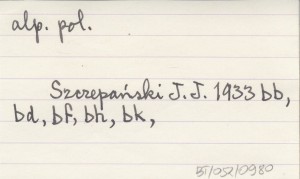 alp. pol.
Szczepański J. J. 1933 bb,
bd, bf, bh, bk,
BT/052/0980